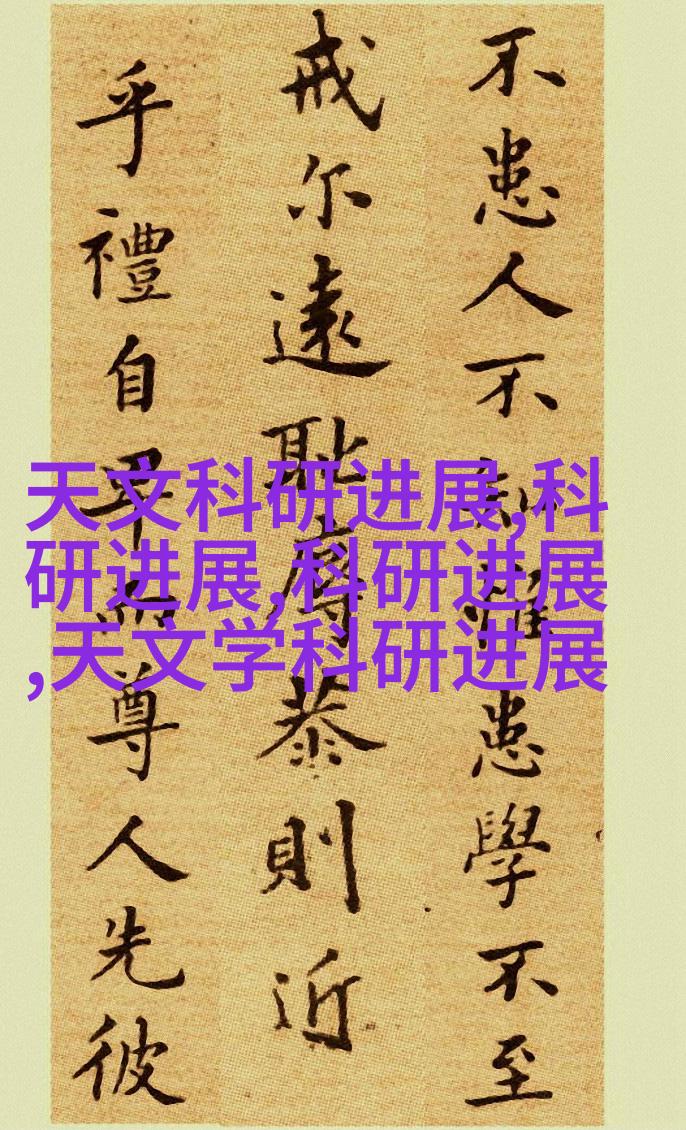 不患人不知惟患學不至
戒尔遠耻辱恭則近
乎禮自卑而尊人先彼
天文科研进展,科
研进展,科研进展
,天文学科研进展